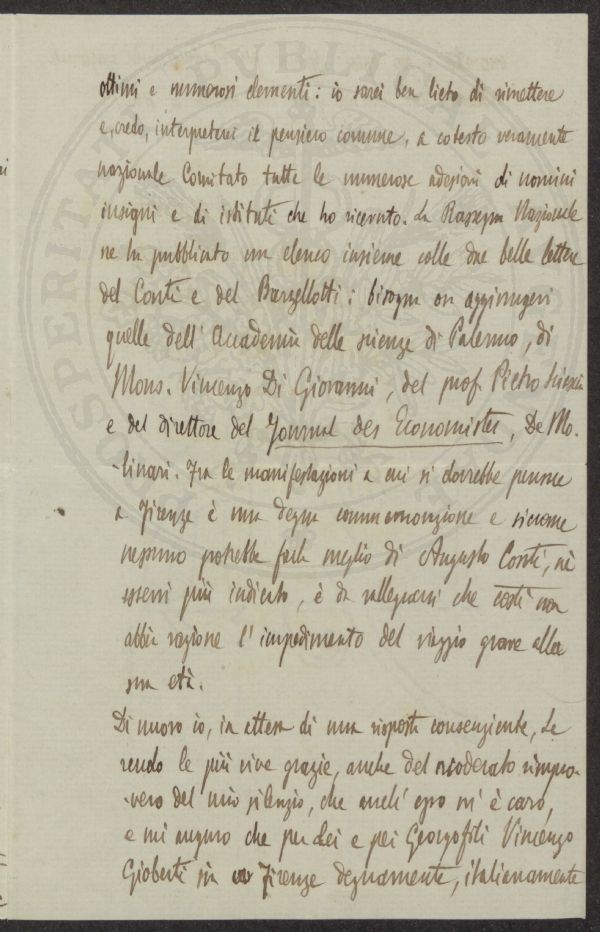 ottimi e numerosi elementi: io sarei ben lieto di rimettere
e, credo, interpreterei il pensiero comune, a cotesto veramente
nazionale Comitato tutte le numerose adesioni di uomini
insigni e di istituti che ho ricevuto. La Rassegna Nazionale
ne ha pubblicato un elenco insieme colle due belle lettere
del Conti e del Barzellotti; bisogna ora aggiungervi
quelle dell'Accademia delle scienze di Palermo, di
Mons. Vincenzo Di Giovanni, del prof. Pietro
e del direttore del Journal des Economistes, De Mo-
-linari. Fra le manifestazioni a cui si dovrebbe pensare
a Firenze è una degna commemorazione e siccome
nessuno potrebbe farla meglio di Augusto Conti, nè
esservi più indicato, è da rallegrarsi che costì non
abbia ragione l'impedimento del viaggio grave alla
sua età.
Di nuovo io, in attesa di una risposta consenziente, Le
rendo le più vive grazie, anche del moderato rimpro-
-vero del mio silenzio, che anch'esso mi è caro,
e mi auguro che per Lei e pei Georgofili Vincenzo
Gioberti sia Firenze degnamente, italianamente
PVBLI
PROSPERITATI